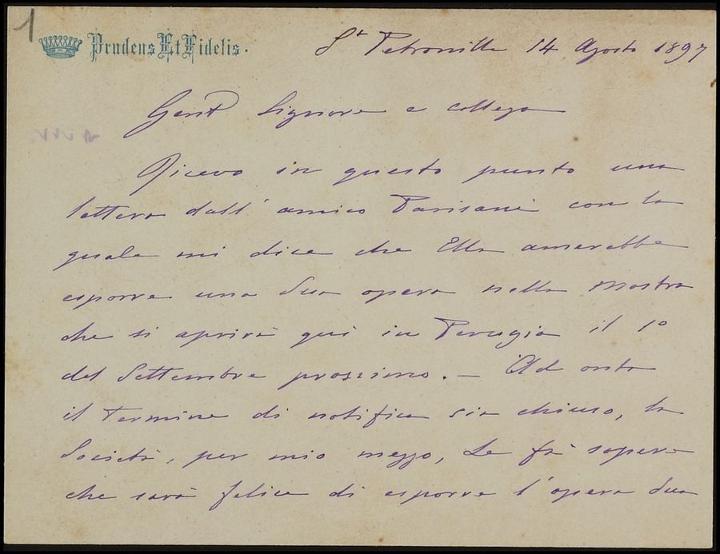 1
Prudens Et Fidelis.
St Petronilla 14 Agosto 1897
Gent Signore e collega
Ricevo in questo punto una
lettera dall' amico Parisani con la
quale mi dice che Ella amerebbe
esporre una Sua opera nella mostra
che si aprirà qui in Perugia il 1º
del Settembre prossimo. — Ad onta
il termine di notifica sia chiuso, la
Società, per mio mezzo, Le fà sapere
che sarà felice di esporre l'opera Sua